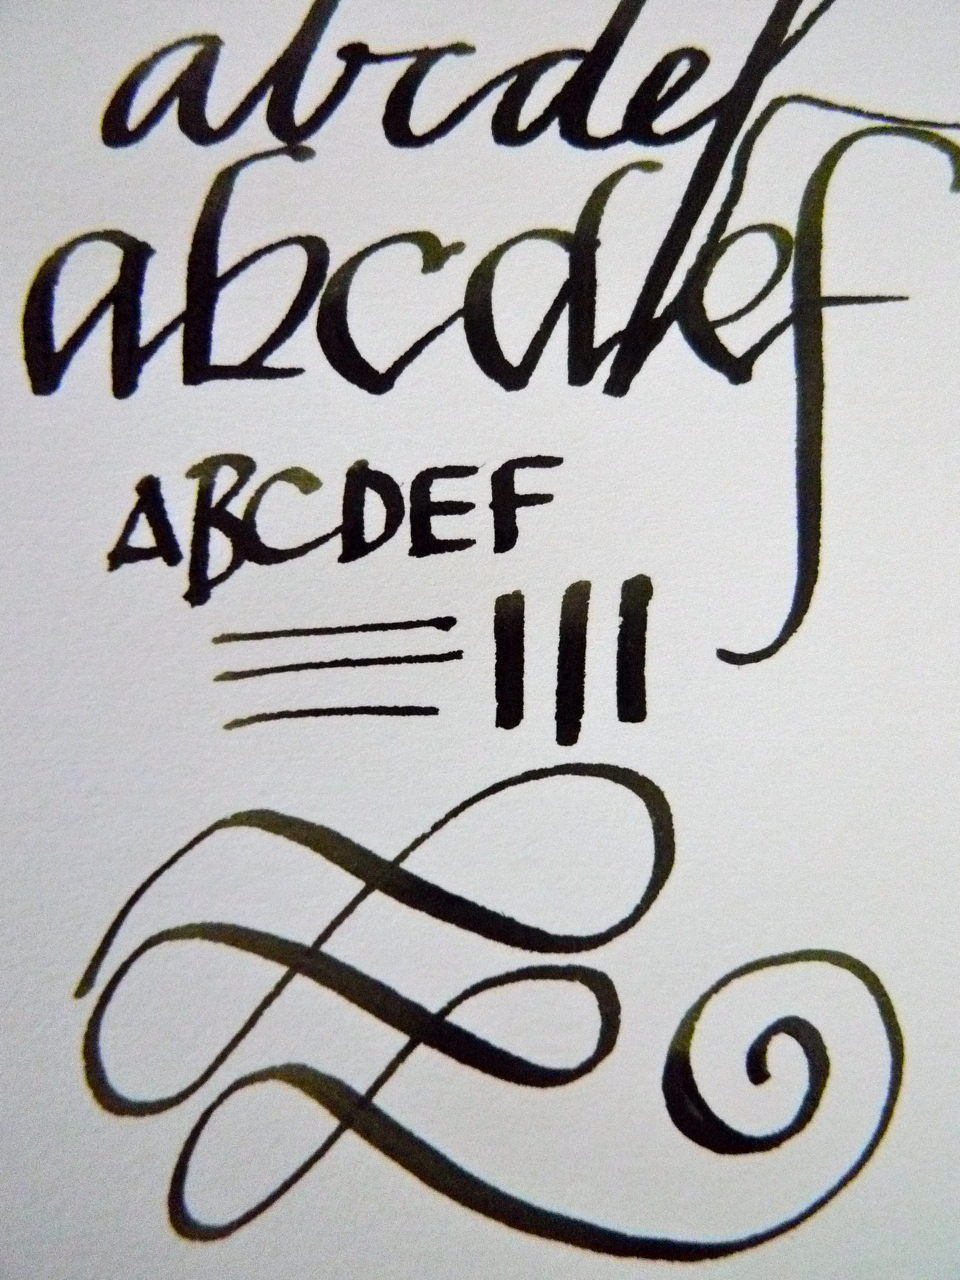 abcdef
abcdef
ABCDEF